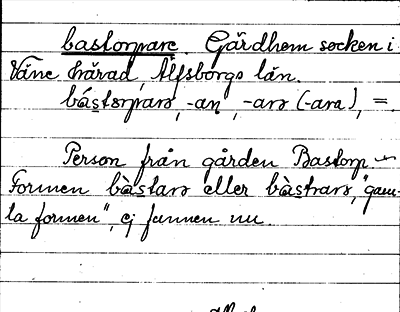 bastorpare. Gärdhem socken i
Väne härad, Älfsborgs län.
bástorparə, -an, -arə (-ara), =.
Person från gården Bastorp –
Formen bàstarə eller bàstrarə, "gam-
la formen", ej funnen nu.